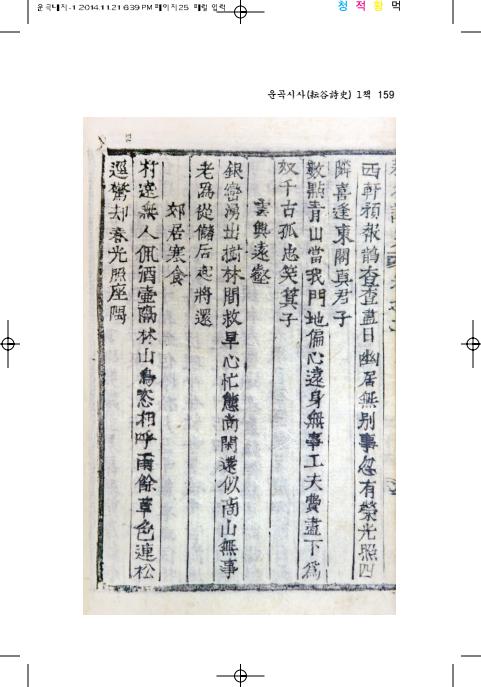 운곡내지-1 2014.11.21 6:39 PM 페이지25 매킬 입력
청 적 황 먹
운곡시사(耘谷詩史) 1책 159
西軒頻報鵲查查盡日幽居無別事忽有榮光照四
隣喜逢東關真君子
數點青山當我門地偏心遠身無事工夫費盡下爲
奴千古孤忠笑箕子
雲興遠壑
銀巒湧出樹林間救旱心忙態尚閑還似商山無事
老爲從儲后也將還
郊居寒食
村逵無人佩酒壺隔林山鳥恣相呼雨餘草色連松
逕驚却春光照座隅